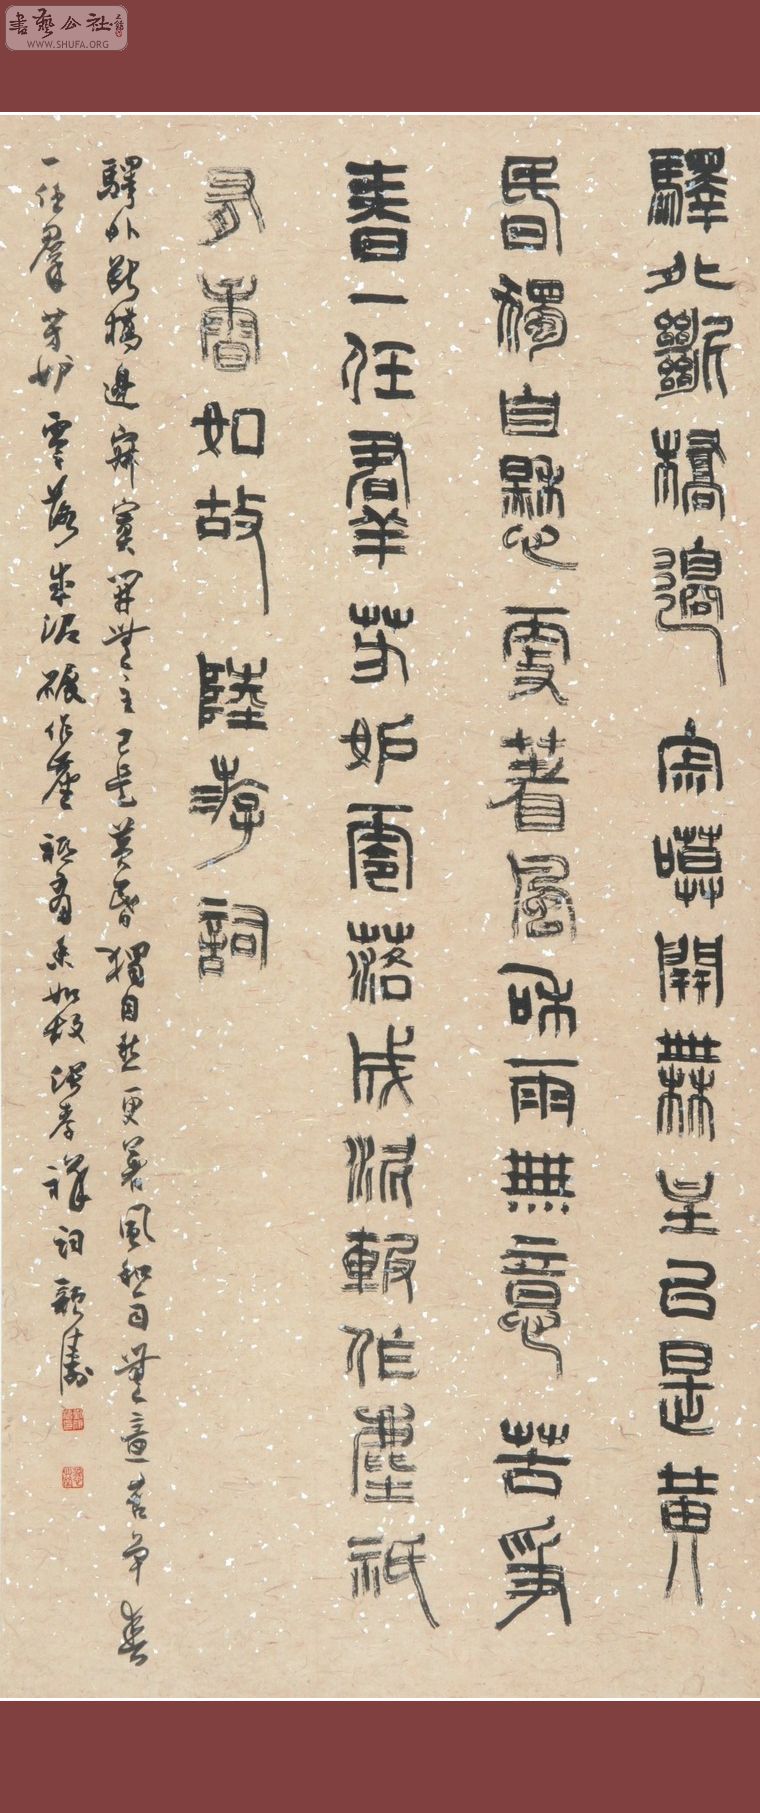 書藝公社
WWW.SHUFA.ORG
驛外斷橋邊寂寞開無主已是黃
昏獨自愁更著風和雨無意苦爭
春一任羣芳妒零落成泥輾作塵祇
有香如故陸游詞
驛外斷橋邊寂寞開無主已是黃昏獨自愁更著風和雨無意苦爭春
一任羣芳妒零落成泥碾作塵祇有香如故孝祥詞顏濤